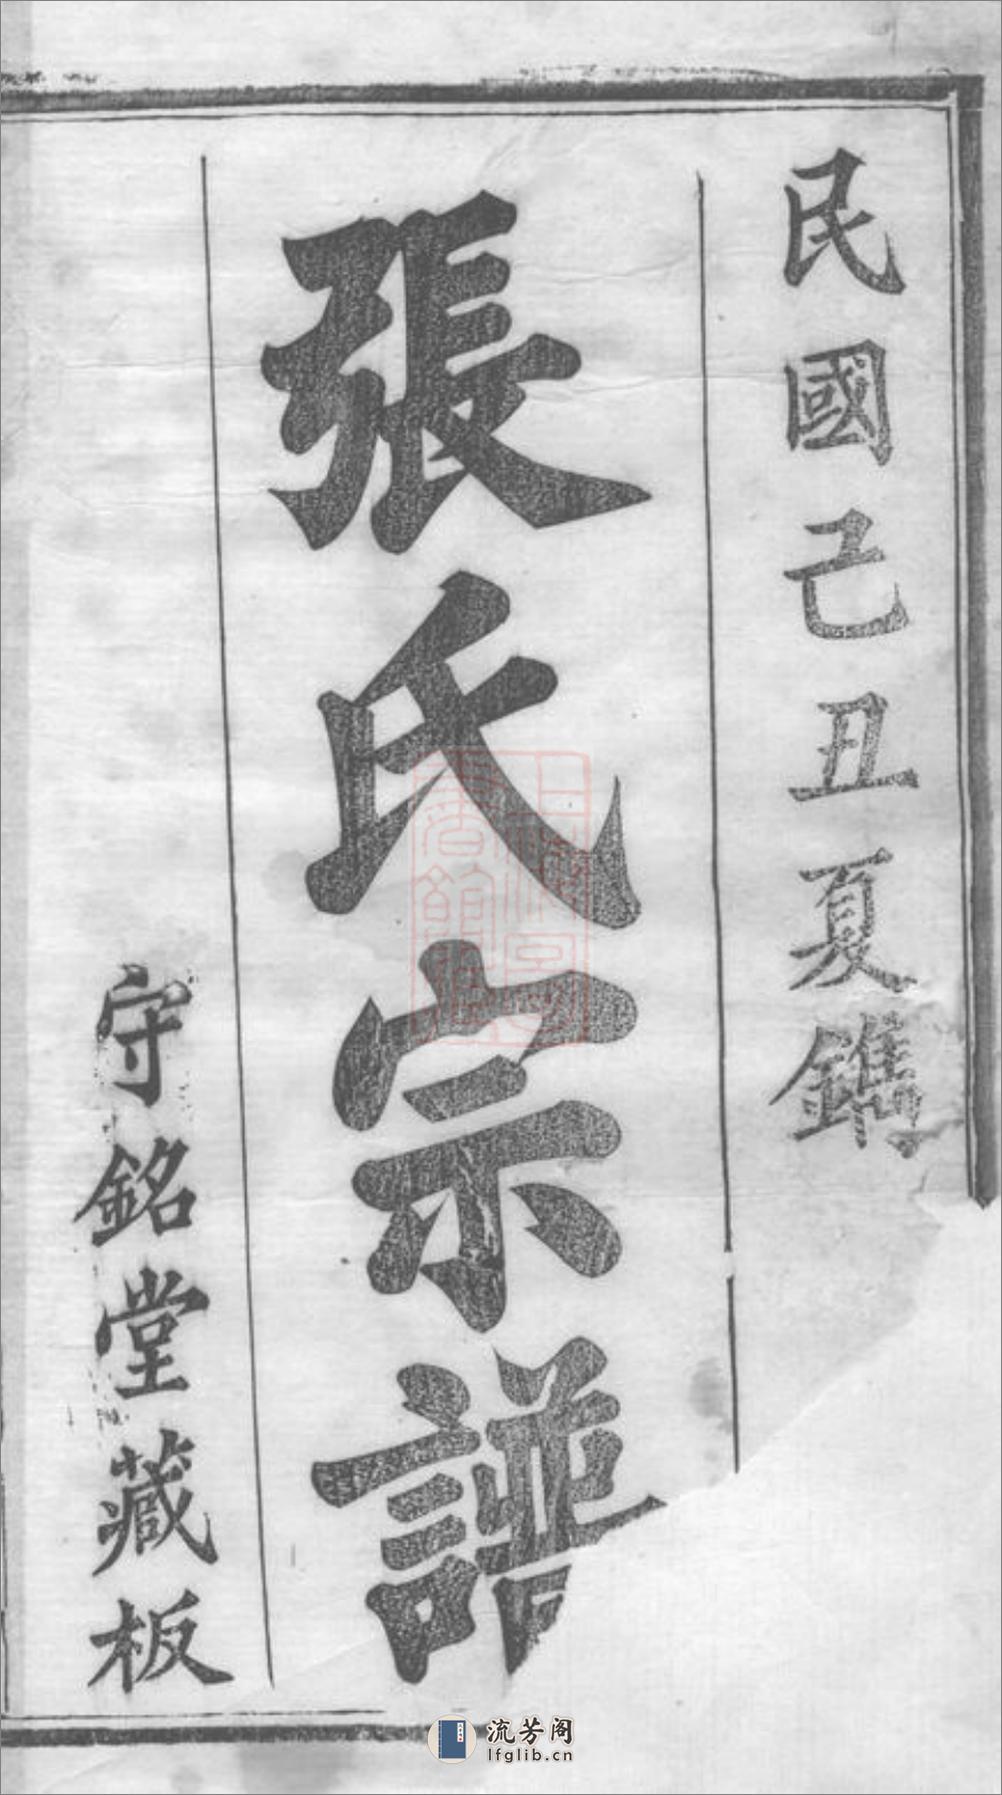 民國己丑夏鐫
張氏宗譜
守銘堂藏板
流芳阁
lfglib.cn